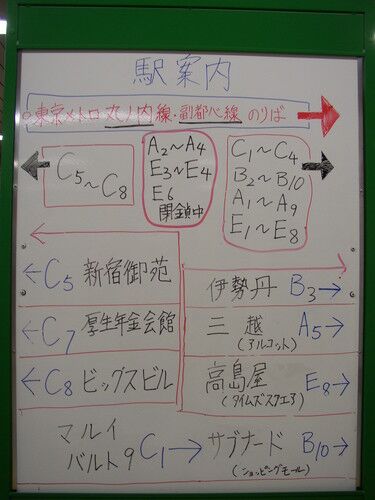 駅案内
○東京メトロ丸ノ内線・副都心線 のりば
C5～C8
A2～A4
E3～E4
E6
閉鎖中
C1～C4
B2～B10
A1～A9
E1～E8
←C5 新宿御苑
伊勢丹 B3→
←C7 厚生年金会館
三越 A5→
(アルコット)
←C8 ビッグスビル
高島屋 E8→
(タイムズスクエア)
マルイ
バルト9 C1→サブナード B10→
(ショッピングモール)